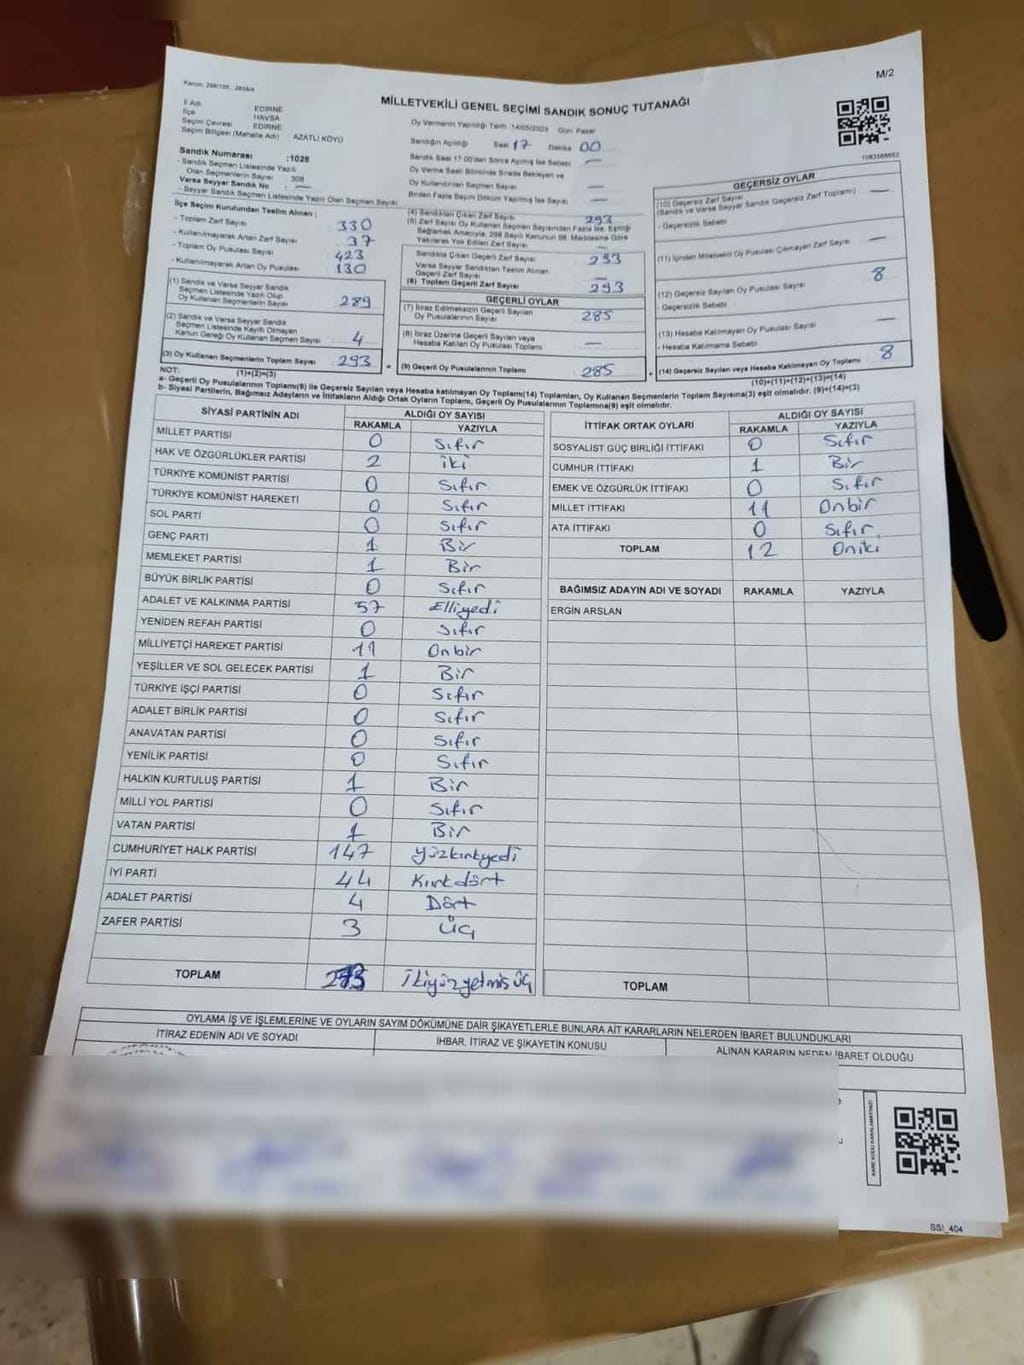 M/2
Kanun: 298/105, 2839/4
MİLLETVEKİLİ GENEL SEÇİMİ SANDIK SONUÇ TUTANAĞI
İl Adı EDİRNE
İlçe HAVSA
Seçim Çevresi EDİRNE
Seçim Bölgesi (Mahalle Adı) AZATLI KÖYÜ
Sandık Numarası :1028
- Sandık Seçmen Listesinde Yazılı
Olan Seçmenlerin Sayısı 308
Varsa Seyyar Sandık No : —
- Seyyar Sandık Seçmen Listesinde Yazılı Olan Seçmen Sayısı
Oy Vermenin Yapıldığı Tarih :14/05/2023 Gün Pazar
Sandığın Açıldığı Saat 17 Dakika 00
Sandık Saat 17.00'den Sonra Açılmış İse Sebebi —
Oy Verme Saati Bitiminde Sırada Bekleyen ve
Oy Kullandırılan Seçmen Sayısı —
Birden Fazla Sayım Döküm Yapılmış İse Sayısı —
1083566652
İlçe Seçim Kurulundan Teslim Alınan :
- Toplam Zarf Sayısı 330
- Kullanılmayarak Artan Zarf Sayısı 37
- Toplam Oy Pusulası Sayısı 423
- Kullanılmayarak Artan Oy Pusulası 130
(1) Sandık ve Varsa Seyyar Sandık
Seçmen Listesinde Yazılı Olup
Oy Kullanan Seçmenlerin Sayısı 289
(2) Sandık ve Varsa Seyyar Sandık
Seçmen Listesinde Kayıtlı Olmayan
Kanun Gereği Oy Kullanan Seçmen Sayısı 4
(3) Oy Kullanan Seçmenlerin Toplam Sayısı 293
(1)+(2)=(3)
(4) Sandıktan Çıkan Zarf Sayısı 293
(5) Zarf Sayısı Oy Kullanan Seçmen Sayısından Fazla İse, Eşitliği
Sağlamak Amacıyla, 298 Sayılı Kanunun 98. Maddesine Göre
Yakılarak Yok Edilen Zarf Sayısı —
Sandıkta Çıkan Geçerli Zarf Sayısı 293
Varsa Seyyar Sandıktan Teslim Alınan
Geçerli Zarf Sayısı —
(6) Toplam Geçerli Zarf Sayısı 293
GEÇERLİ OYLAR
(7) İtiraz Edilmeksizin Geçerli Sayılan
Oy Pusulalarının Sayısı 285
(8) İtiraz Üzerine Geçerli Sayılan veya
Hesaba Katılan Oy Pusulası Toplamı —
(9) Geçerli Oy Pusulalarının Toplamı 285
GEÇERSİZ OYLAR
(10) Geçersiz Zarf Sayısı
(Sandık ve Varsa Seyyar Sandık Geçersiz Zarf Toplamı) —
- Geçersizlik Sebebi
(11) İçinden Milletvekili Oy Pusulası Çıkmayan Zarf Sayısı —
(12) Geçersiz Sayılan Oy Pusulası Sayısı 8
- Geçersizlik Sebebi
(13) Hesaba Katılmayan Oy Pusulası Sayısı —
- Hesaba Katılmama Sebebi
(14) Geçersiz Sayılan veya Hesaba Katılmayan Oy Toplamı 8
(10)+(11)+(12)+(13)=(14)
NOT:
a- Geçerli Oy Pusulalarının Toplamı(9) ile Geçersiz Sayılan veya Hesaba katılmayan Oy Toplamı(14) Toplamları, Oy Kullanan Seçmenlerin Toplam Sayısına(3) eşit olmalıdır. (9)+(14)=(3)
b- Siyasi Partilerin, Bağımsız Adayların ve İttifakların Aldığı Ortak Oyların Toplamı, Geçerli Oy Pusulalarının Toplamına(9) eşit olmalıdır.
SİYASİ PARTİNİN ADI ALDIĞI OY SAYISI
RAKAMLA YAZIYLA
MİLLET PARTİSİ 0 Sıfır
HAK VE ÖZGÜRLÜKLER PARTİSİ 2 iki
TÜRKİYE KOMÜNİST PARTİSİ 0 Sıfır
TÜRKİYE KOMÜNİST HAREKETİ 0 Sıfır
SOL PARTİ 0 Sıfır
GENÇ PARTİ 1 Bir
MEMLEKET PARTİSİ 1 Bir
BÜYÜK BİRLİK PARTİSİ 0 Sıfır
ADALET VE KALKINMA PARTİSİ 57 Elliyedi
YENİDEN REFAH PARTİSİ 0 Sıfır
MİLLİYETÇİ HAREKET PARTİSİ 11 Onbir
YEŞİLLER VE SOL GELECEK PARTİSİ 1 Bir
TÜRKİYE İŞÇİ PARTİSİ 0 Sıfır
ADALET BİRLİK PARTİSİ 0 Sıfır
ANAVATAN PARTİSİ 0 Sıfır
YENİLİK PARTİSİ 0 Sıfır
HALKIN KURTULUŞ PARTİSİ 1 Bir
MİLLİ YOL PARTİSİ 0 Sıfır
VATAN PARTİSİ 1 Bir
CUMHURİYET HALK PARTİSİ 147 Yüzkırkyedi
İYİ PARTİ 44 Kırkdört
ADALET PARTİSİ 4 Dört
ZAFER PARTİSİ 3 Üç
TOPLAM 273 İkiyüzyetmiş üç
İTTİFAK ORTAK OYLARI ALDIĞI OY SAYISI
RAKAMLA YAZIYLA
SOSYALİST GÜÇ BİRLİĞİ İTTİFAKI 0 Sıfır
CUMHUR İTTİFAKI 1 Bir
EMEK VE ÖZGÜRLÜK İTTİFAKI 0 Sıfır
MİLLET İTTİFAKI 11 Onbir
ATA İTTİFAKI 0 Sıfır.
TOPLAM 12 Oniki
BAĞIMSIZ ADAYIN ADI VE SOYADI RAKAMLA YAZIYLA
ERGİN ARSLAN
TOPLAM
OYLAMA İŞ VE İŞLEMLERİNE VE OYLARIN SAYIM DÖKÜMÜNE DAİR ŞİKAYETLERLE BUNLARA AİT KARARLARIN NELERDEN İBARET BULUNDUKLARI
İTİRAZ EDENİN ADI VE SOYADI İHBAR, İTİRAZ VE ŞİKAYETİN KONUSU ALINAN KARARIN NEDEN İBARET OLDUĞU
KARE KODU KARALAMAYINIZ!
SSI_404